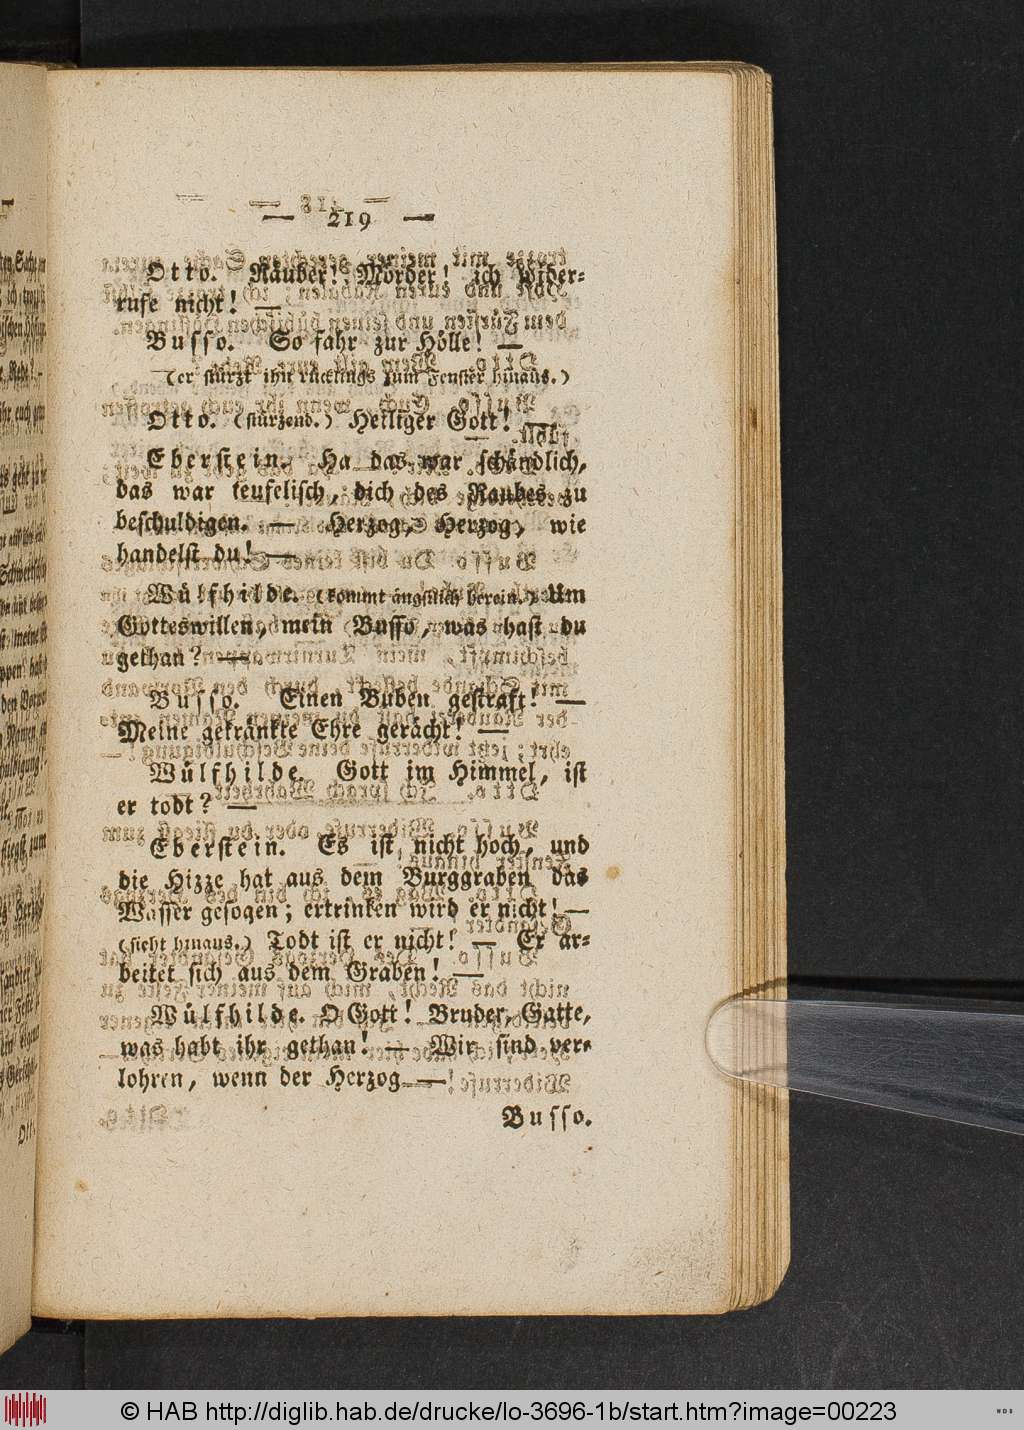 — 219 —
Otto. Räuber! Mörder! ich wider-
rufe nicht! —
Busso. So fahr zur Hölle! —
(er stürzt ihn rücklings zum Fenster hinaus.)
Otto. (stürzend.) Heiliger Gott! —
Eberstein. Ha das war schändlich,
das war teufelisch, dich des Raubes zu
beschuldigen. — Herzog, Herzog, wie
handelst du! —
Wülfhilde. (kommt ängstlich herein.) Um
Gotteswillen, mein Busso, was hast du
gethan? —
Busso. Einen Buben gestraft! —
Meine gekränkte Ehre gerächt! —
Wülfhilde. Gott im Himmel, ist
er todt? —
Eberstein. Es ist nicht hoch, und
die Hizze hat aus dem Burggraben das
Wasser gesogen; ertrinken wird er nicht! —
(sieht hinaus.) Todt ist er nicht! — Er ar-
beitet sich aus dem Graben! —
Wülfhilde. O Gott! Bruder, Gatte,
was habt ihr gethan! — Wir sind ver-
lohren, wenn der Herzog — —
Busso.
© HAB http://diglib.hab.de/drucke/lo-3696-1b/start.htm?image=00223